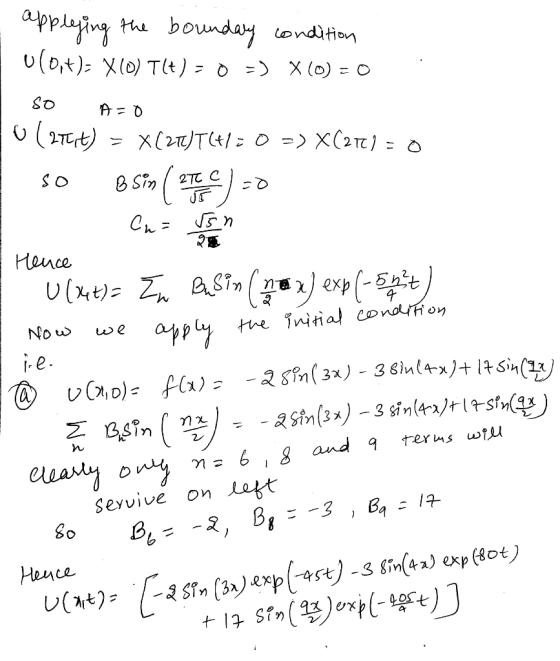 applying the bounday condition
U(0,t) = X(0) T(t) = 0 => X(0) = 0
so A = 0
U(2π,t) = X(2π)T(t) = 0 => X(2π) = 0
so B Sin (2πC/√5) = 0
Cn = √5 n/2
Hence
U(x,t) = Σn Bn Sin (n/2 x) exp(-5n²/4 t)
Now we apply the initial condition
i.e.
(a) U(x,0) = f(x) = -2 sin(3x) - 3 sin(4x) + 17 sin(9x/2)
Σn Bn sin (nx/2) = -2 sin(3x) - 3 sin(4x) + 17 sin(9x/2)
clearly only n = 6, 8 and 9 terms will
servive on left
so B6 = -2, B8 = -3, B9 = 17
Hence
U(x,t) = [-2 sin (3x) exp(-45t) - 3 sin(4x) exp(80t)
+ 17 sin (9x/2) exp(-405/4 t)]